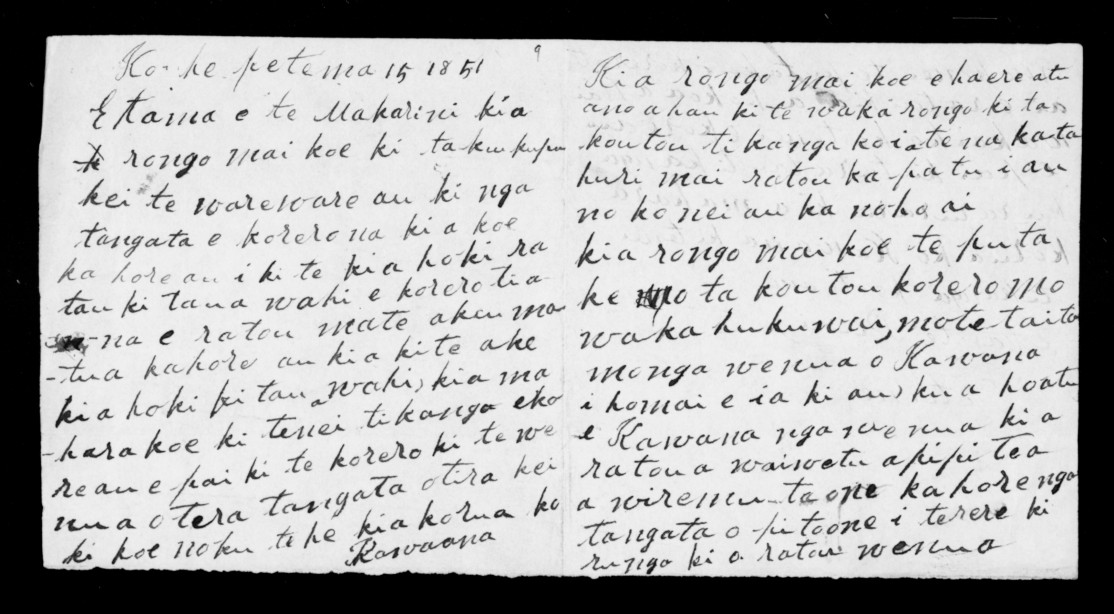 Ko he petema 15 1851
E tama e te Makarini kia
rongo mai koe ki taku kupu
kei te wareware au ki nga
tangata e korero na ki a koe
ka hore au i kite kia hoki ra
tau ki tana wahi e korero tia
na e ratou mate akeu ma
-tua kahore au kia kite ake
kia hoki ki tau wahi, kia ma
-hara koe ki tenei tikanga eko
re au e pai ki te korero ki te we
nua o tera tangata otira kei
ki koe noku te he kia korua ko
Kawaana
Kia rongo mai koe e haere atu
ano ahau ki te waka rongo ki ta
koutou tikanga koia te na ka ta
huri mai ratou ka patu i au
no ko nei au ka noho ai
kia rongo mai koe te puta
ke mo ta koutou korero mo
waka huku wai, mote taita
monga wenua o Kawana
i homai e ia ki au, kua hoatu
e Kawana nga wenua ki a
ratou a waiwetu a pipitea
a wiremu taone kahore nga
tangata o pitaone i terere ki
runga ki a ratou wenua